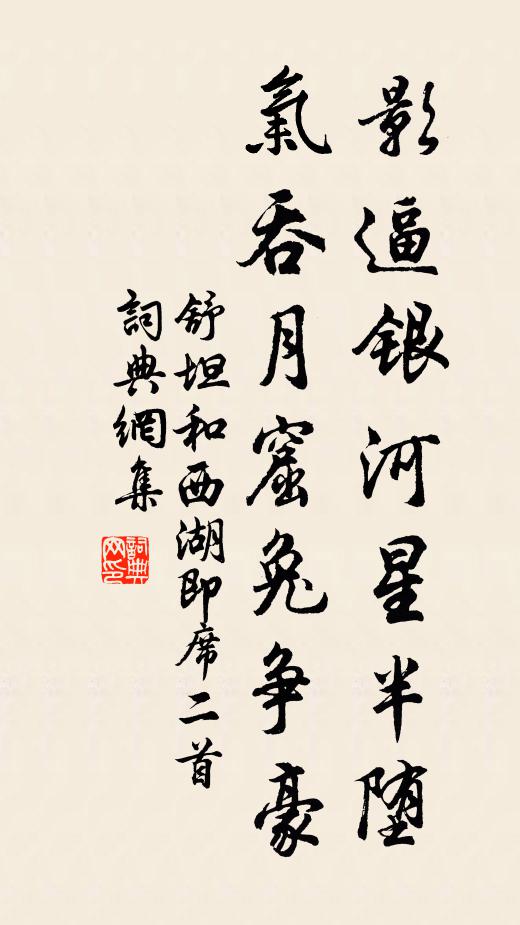 影逼銀河星半堕
氣吞月窟兔争豪
舒坦和西湖即席二首
詞典網集
詞典网印